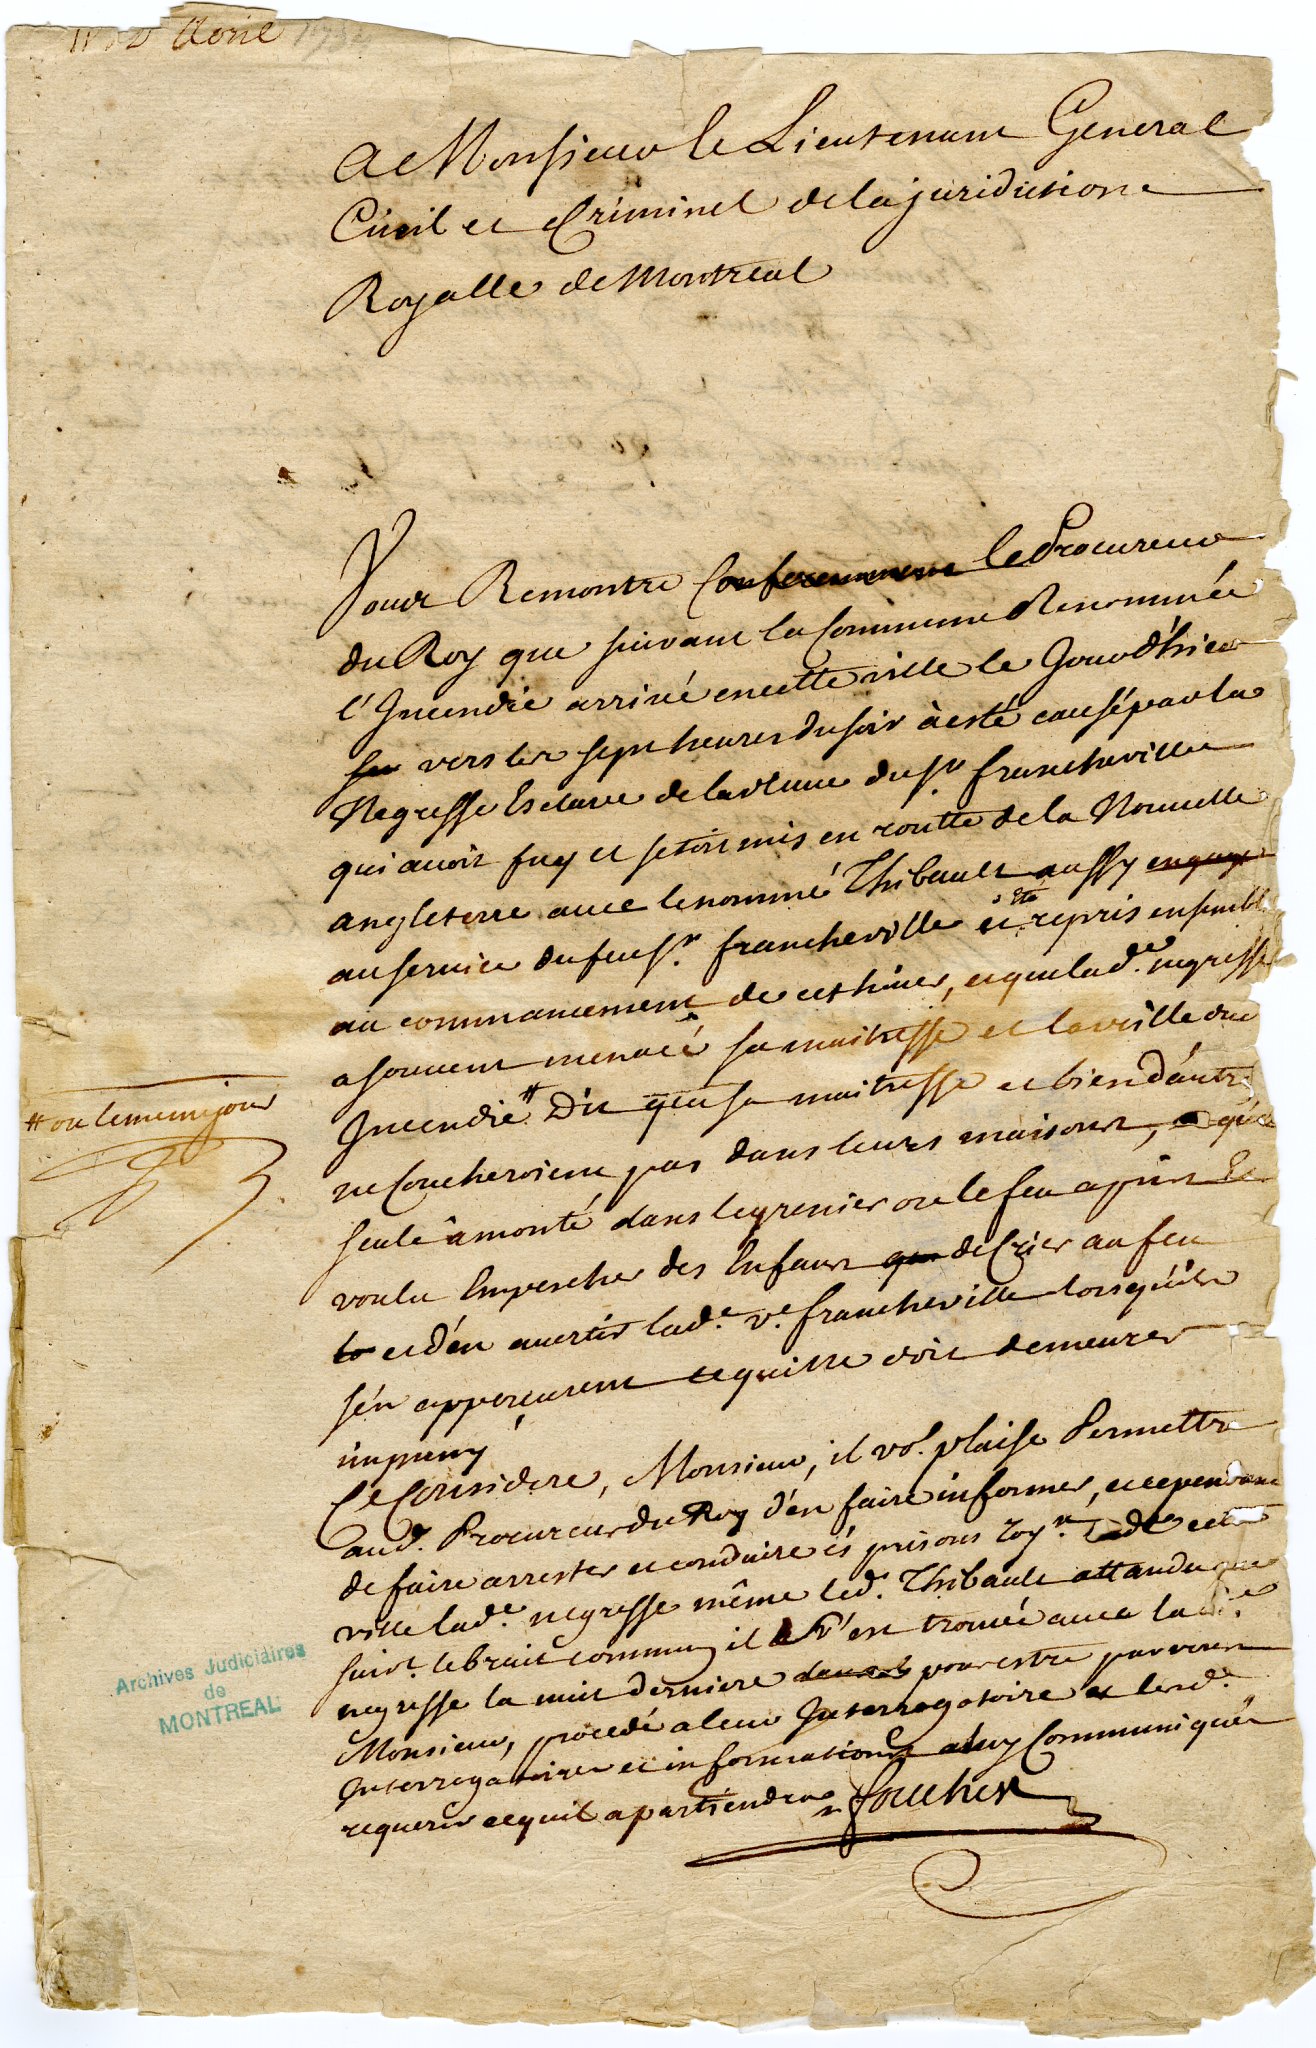 Avril 1734
A Monsieur le Lieutenant General
Ciuil et Criminel de la juridiction
Royalle de Montreal
Vous Remontre le Procureur
du Roy que suivant la Commune Renommée
l'Incendie arrivé en cette ville le Jour d'hier
vers les sept heures du soir à esté causé par la
Negresse Esclave de la veuue du Sr. francheville
qui auoit fuy et setoit mis en routte de la Nouuelle
angleterre auec le nommé Thibault aussy engagé
au seruice du feu Sr. francheville et été repris ensemble
au commancement de cet hiuer, et que lad.e negresse
a souuent menacé sa maitresse et la veille du
# ou le meme jour
Incendie # Dit que sa maitresse et bien d'autres
ne Coucheroient pas dans leurs maisons, qu'elle
seule à monté dans le grenier ou le feu a pris Et
voulu Empescher des Enfans de Crier au feu
et d'en auertir lad.e v.e francheville lorsqu'ils
s'en apperçeurent ce qui ne doit demeurer
impuny
Ce Consideré, Monsieur, il vo.s plaise Permettre
aud. Procureur du Roy d'en faire informer, et cependant
de faire arrester et conduire és prisons roy.les de cette
ville lad.e negresse même led. Thibault attandu que
suiv.t le bruit commun il s'est trouué auec lad.e
negresse la nuit derniere pour estre par vous
Monsieur, procedé a leur Interrogatoire et lesd.
Interrogatoires et informations a luy Communiquées
requerir ce qu'il apartiendra
foucher
Archives Judiciaires
de
MONTREAL